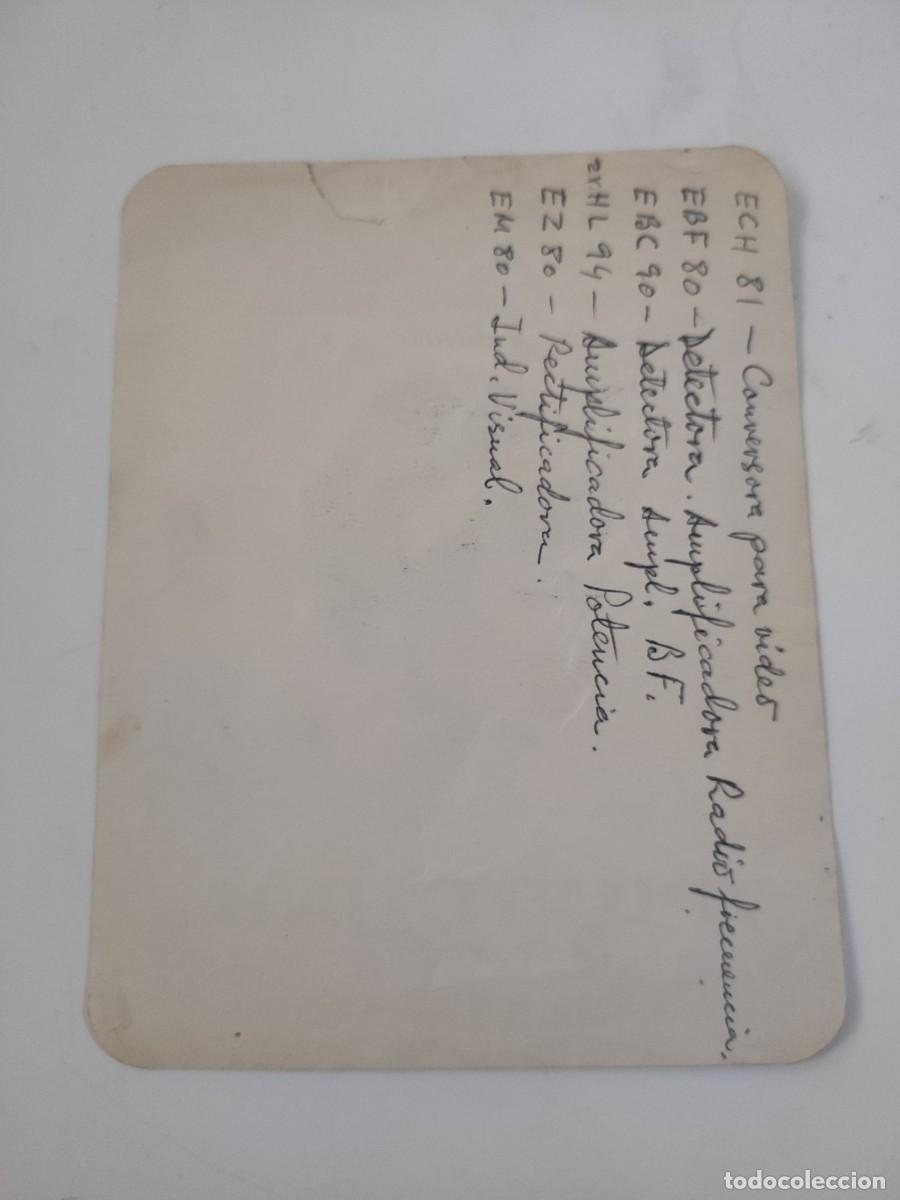 ECH 81 – Conversora para video
EBF 80 – Detectora. Amplificadora Radio fiecuencia.
EBC 90 – Detectora Ampl. BF.
HL 94 – Amplificadora Potencia.
EZ 80 – Rectificadora.
EM 80 – Ind. Visual.
todocoleccion